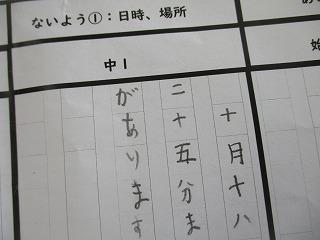 ないよう①:日時、場所
中1
十月十八
二十五分ま
があります